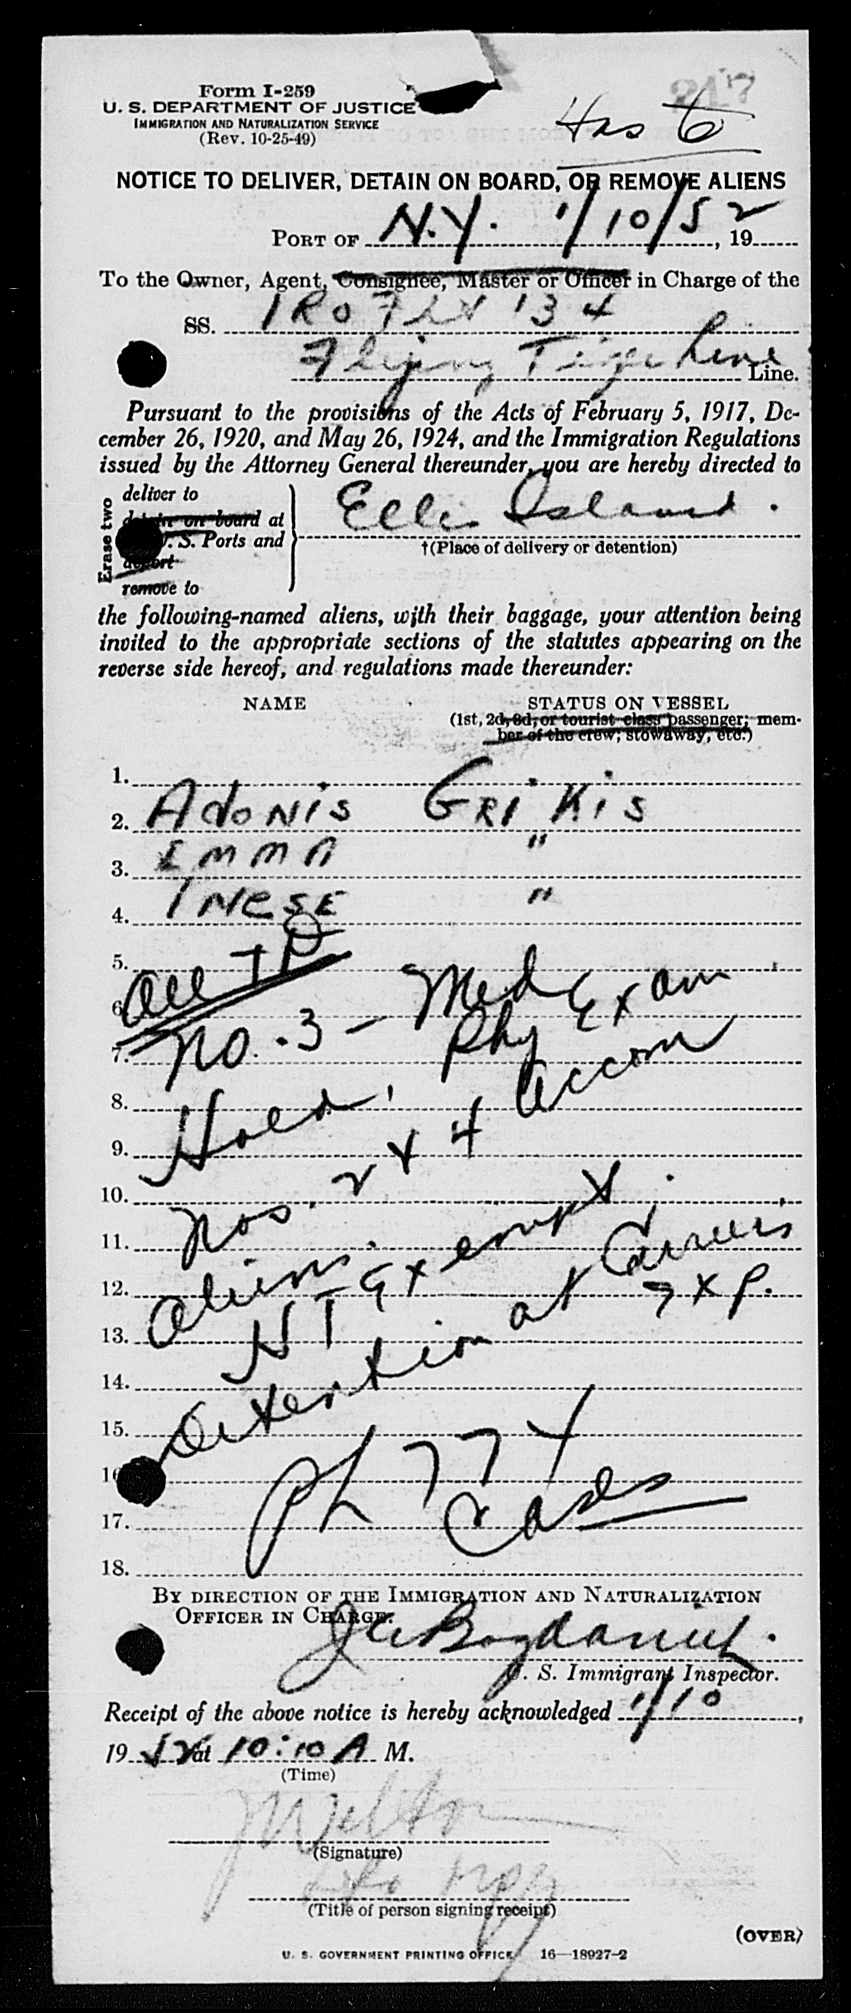 Form I-259
U. S. DEPARTMENT OF JUSTICE
IMMIGRATION AND NATURALIZATION SERVICE
(Rev. 10-25-49)
217
NOTICE TO DELIVER, DETAIN ON BOARD, OR REMOVE ALIENS
PORT OF N.Y. 1/10/52, 19
To the Owner, Agent, Consignee, Master or Officer in Charge of the
SS. IRO Flt 134
Flying Tiger Line Line.
Pursuant to the provisions of the Acts of February 5, 1917, De-
cember 26, 1920, and May 26, 1924, and the Immigration Regulations
issued by the Attorney General thereunder, you are hereby directed to
Erase two
deliver to
detain on board at
U. S. Ports and
deport
remove to
Ellis Island.
†(Place of delivery or detention)
the following-named aliens, with their baggage, your attention being
invited to the appropriate sections of the statutes appearing on the
reverse side hereof, and regulations made thereunder:
NAME STATUS ON VESSEL
(1st, 2d, 3d, or tourist class passenger; mem-
ber of the crew; stowaway, etc.)
1.
2. Adonis GRIKIS
3. EMMA "
4. INESE "
5. All TD
6. No. 3 - Med
7. Phy Exam
8. Hold,
9. Accom
10. Nos. 2 & 4
11. Aliens.
12. NT Exempt.
13. Detention at Carriers
14. Exp.
15.
16. PL 774
17. Cases
18.
BY DIRECTION OF THE IMMIGRATION AND NATURALIZATION
OFFICER IN CHARGE.
Bogdanich.
U. S. Immigrant Inspector.
Receipt of the above notice is hereby acknowledged 1/10,
19 52 at 10:10 A M.
(Time)
(Signature)
(Title of person signing receipt)
(OVER)
U. S. GOVERNMENT PRINTING OFFICE 16—18927-2